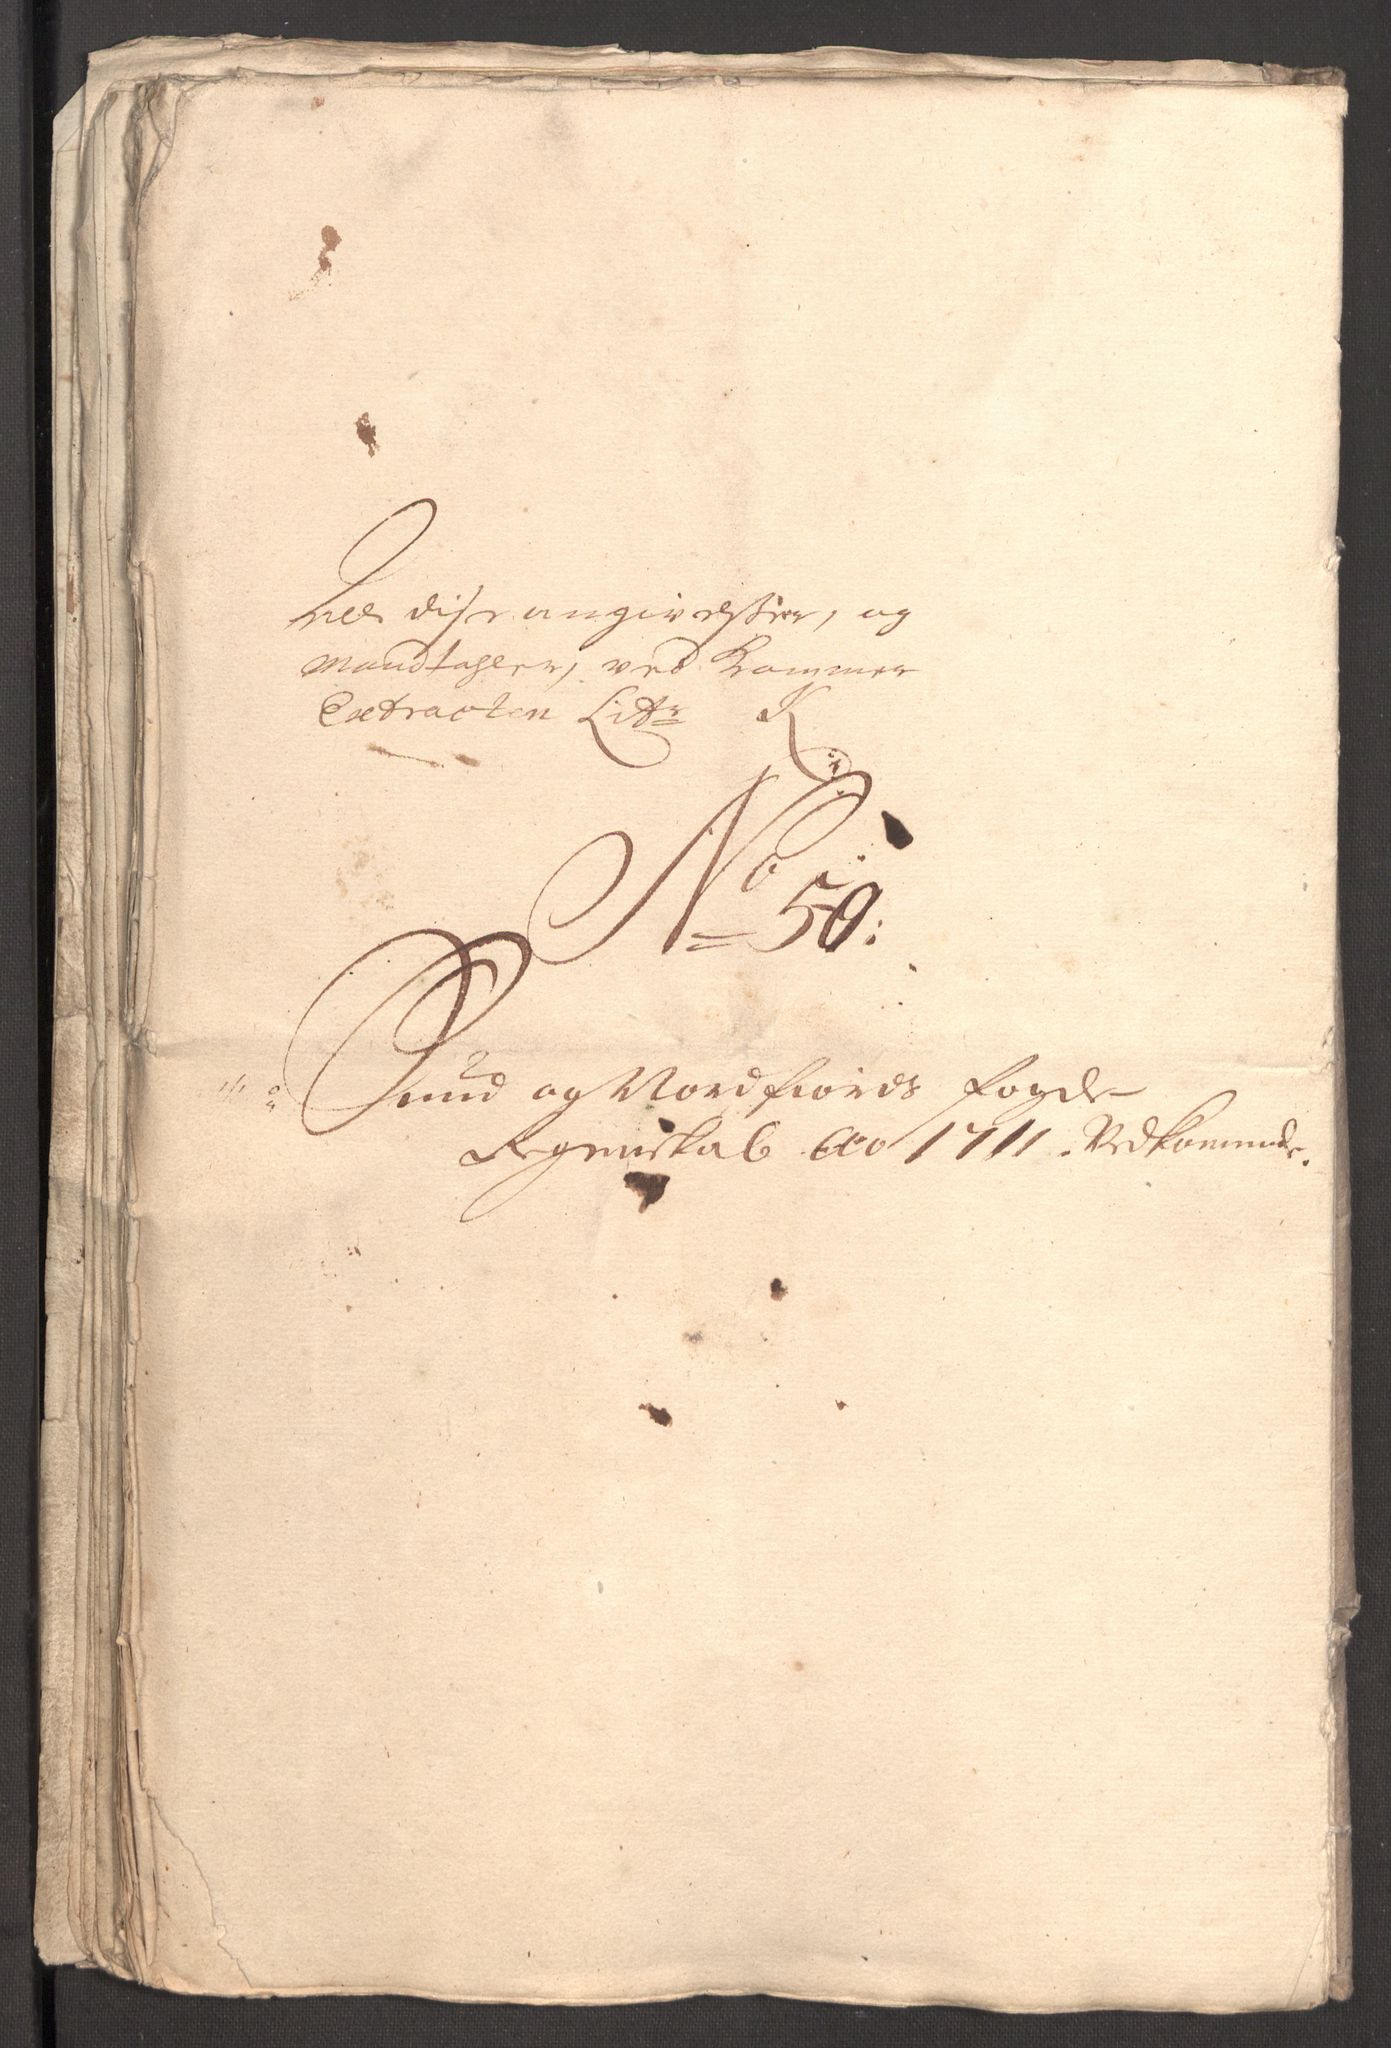 disse angivelser, og
Mandtahler, ved Kammer
Extracten Litr K
No 50:
Sund og Nordfiords fogde
Regenskab Ao 1711. Vedkommende.